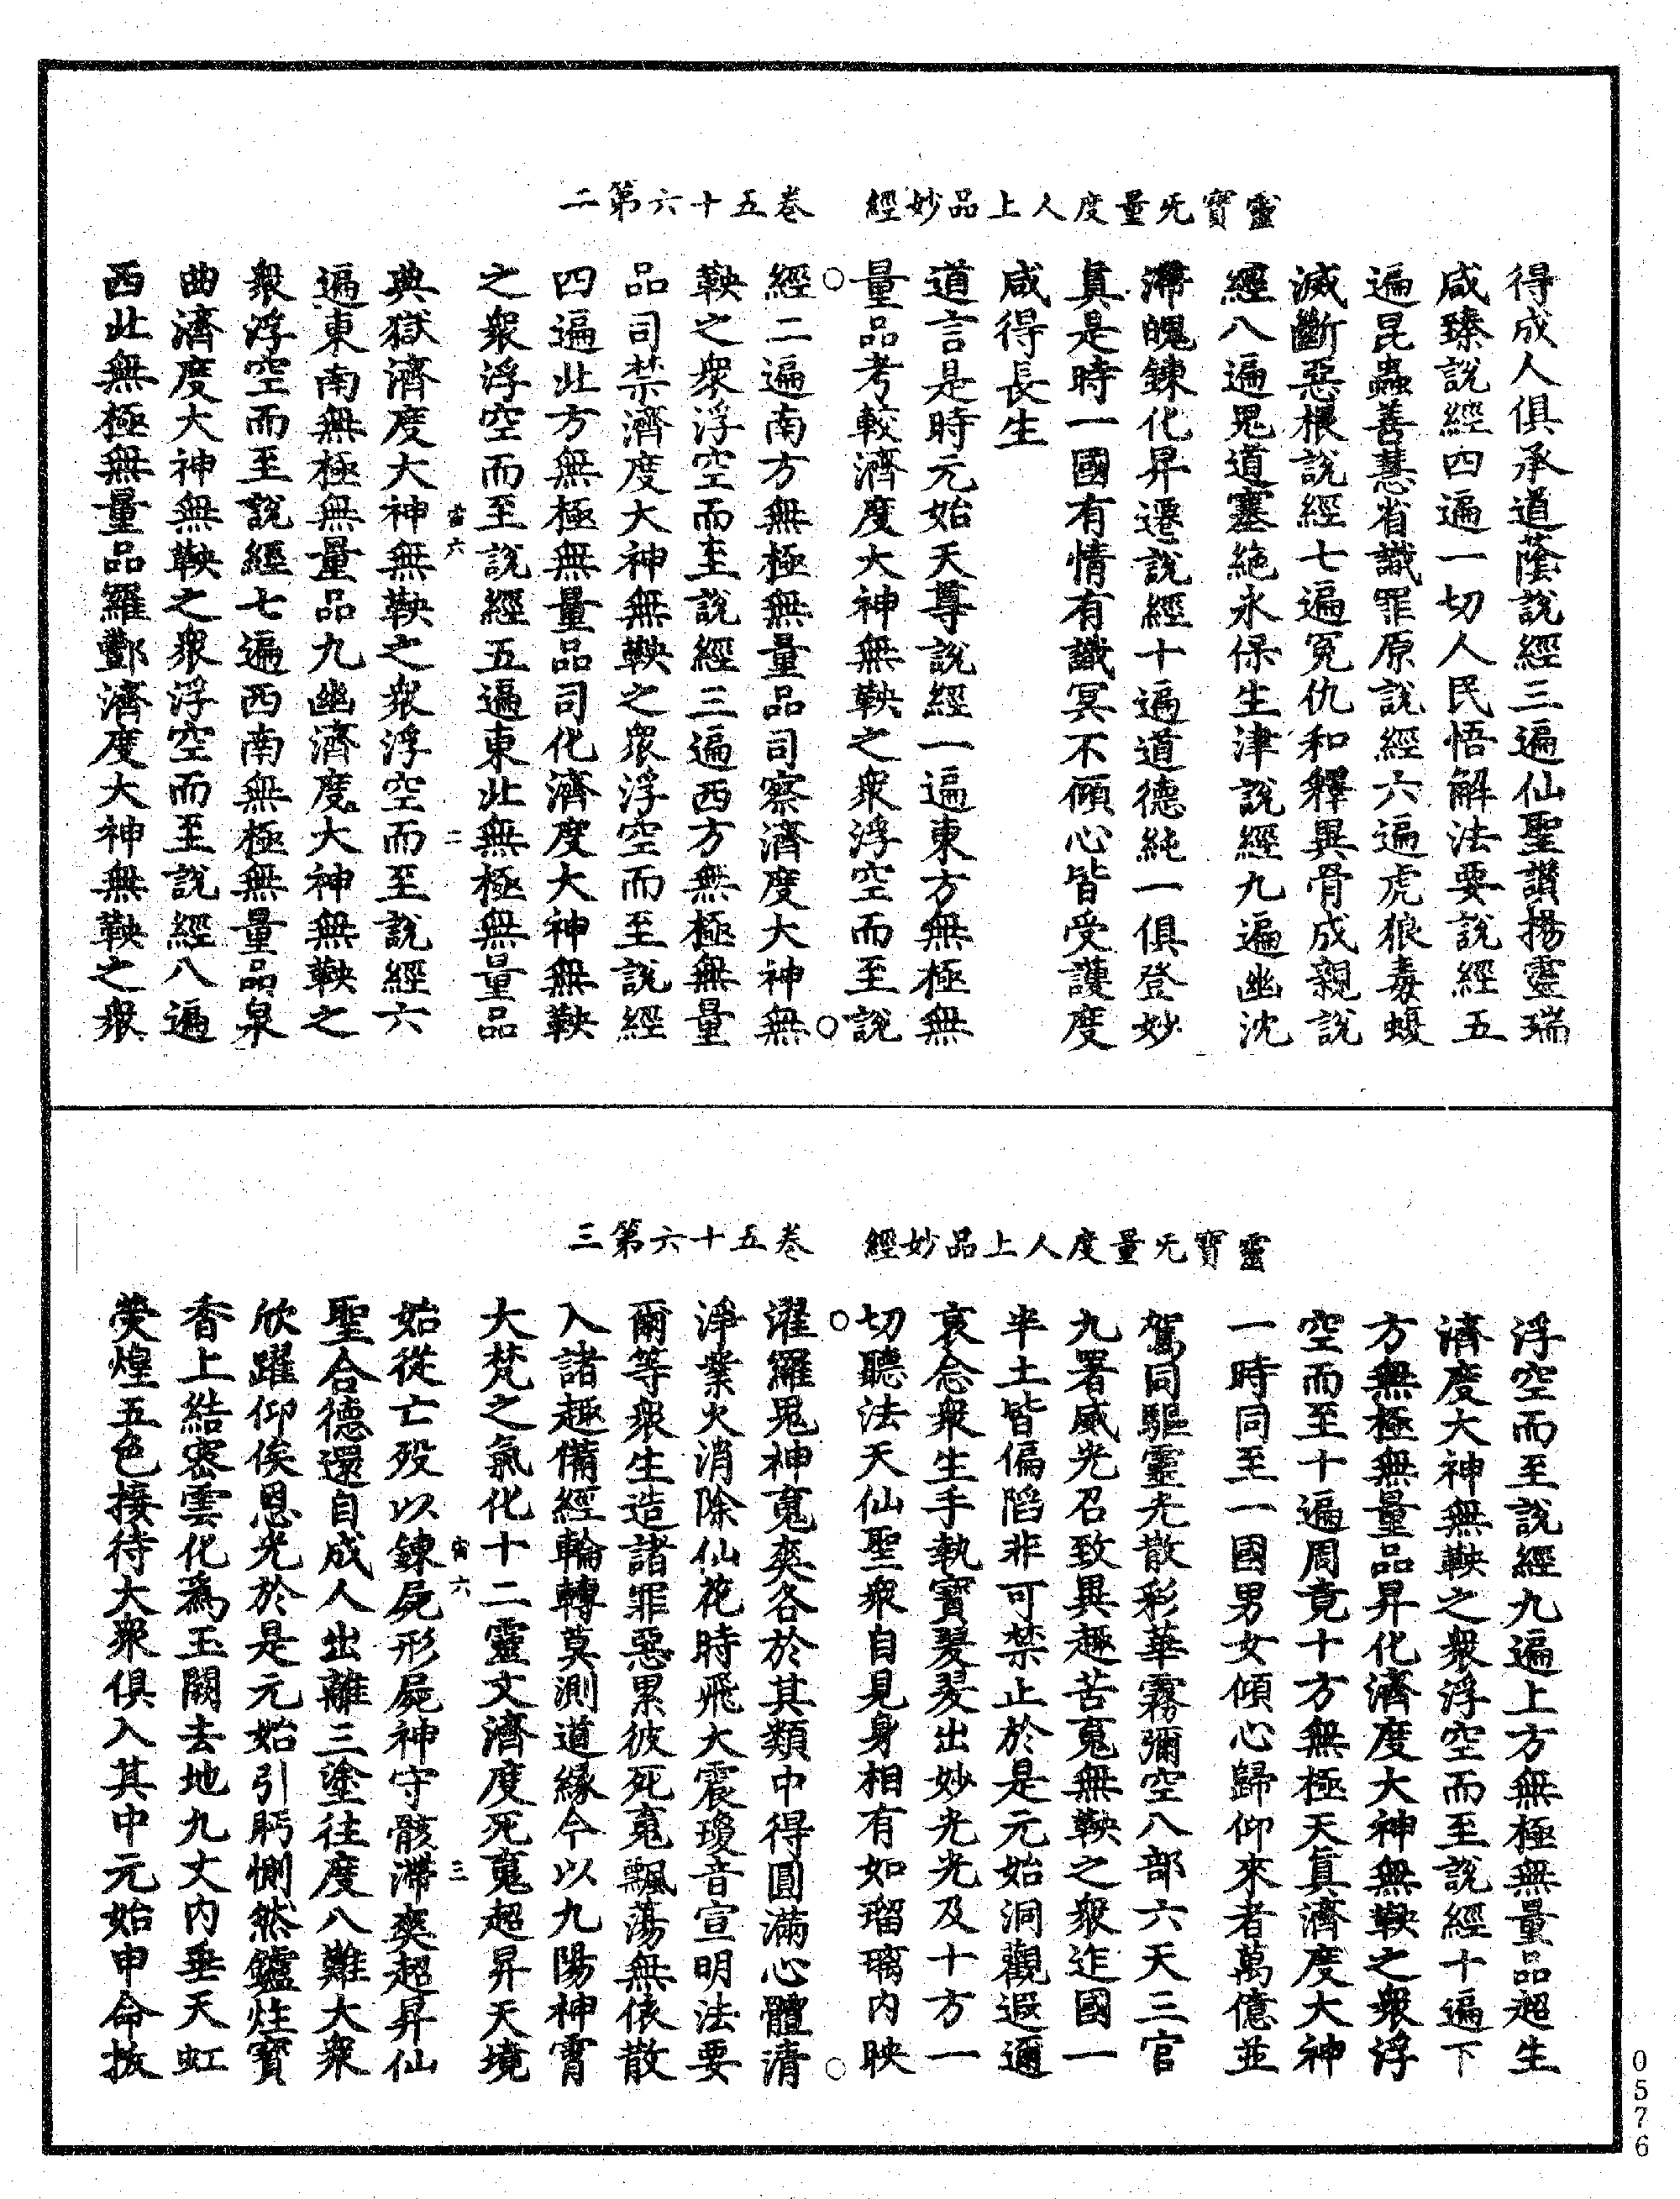 靈寶无量度人上品妙經　卷五十六第二
得成人俱承道蔭說經三遍仙聖讚揚靈瑞
咸臻說經四遍一切人民悟解法要說經五
遍昆蟲善慧省識罪原說經六遍虎狼毒蝮
滅斷惡根說經七遍冤仇和釋異骨成親說
經八遍鬼道塞絶永保生津說經九遍幽沈
滯魄鍊化昇遷說經十遍道德純一俱登妙
真是時一國有情有識冥不傾心皆受護度
咸得長生
道言是時元始天尊說經一遍東方無極無
量品考較濟度大神無鞅之衆浮空而至說
經二遍南方無極無量品司察濟度大神無
鞅之衆浮空而至說經三遍西方無極無量
品司禁濟度大神無鞅之衆浮空而至說經
四遍北方無極無量品司化濟度大神無鞅
之衆浮空而至說經五遍東北無極無量品
宙六　二
典獄濟度大神無鞅之衆浮空而至說經六
遍東南無極無量品九幽濟度大神無鞅之
衆浮空而至說經七遍西南無極無量品泉
曲濟度大神無鞅之衆浮空而至說經八遍
西北無極無量品羅酆濟度大神無鞅之衆
靈寶无量度人上品妙經　卷五十六第三
浮空而至說經九遍上方無極無量品超生
濟度大神無鞅之衆浮空而至說經十遍下
方無極無量品昇化濟度大神無鞅之衆浮
空而至十遍周竟十方無極天真濟度大神
一時同至一國男女傾心歸仰來者萬億並
駕同驅靈光散彩華霧彌空八部六天三官
九署威光召致異趣苦䰟無鞅之衆迮國一
半土皆偏陷非可禁止於是元始洞觀遐邇
哀念衆生手執寶髮髮出妙光光及十方一
切聽法天仙聖衆自見身相有如瑠璃内映
濯羅鬼神䰟爽各於其類中得圓滿心體清
淨業火消除仙花時飛大震瓊音宣明法要
爾等衆生造諸罪惡累彼死䰟飄蕩無依散
入諸趣備經輪轉莫測道緣今以九陽神霄
大梵之氣化十二靈文濟度死䰟超昇天境
宙六　三
始從亡歿以鍊屍形屍神守骸滯爽超昇仙
聖合德還自成人出離三塗往度八難大衆
欣躍仰俟恩光於是元始引眄惻然鑪炷寶
香上結密雲化爲玉闕去地九丈内垂天虹
熒煌五色接待大衆俱入其中元始申命披
0576